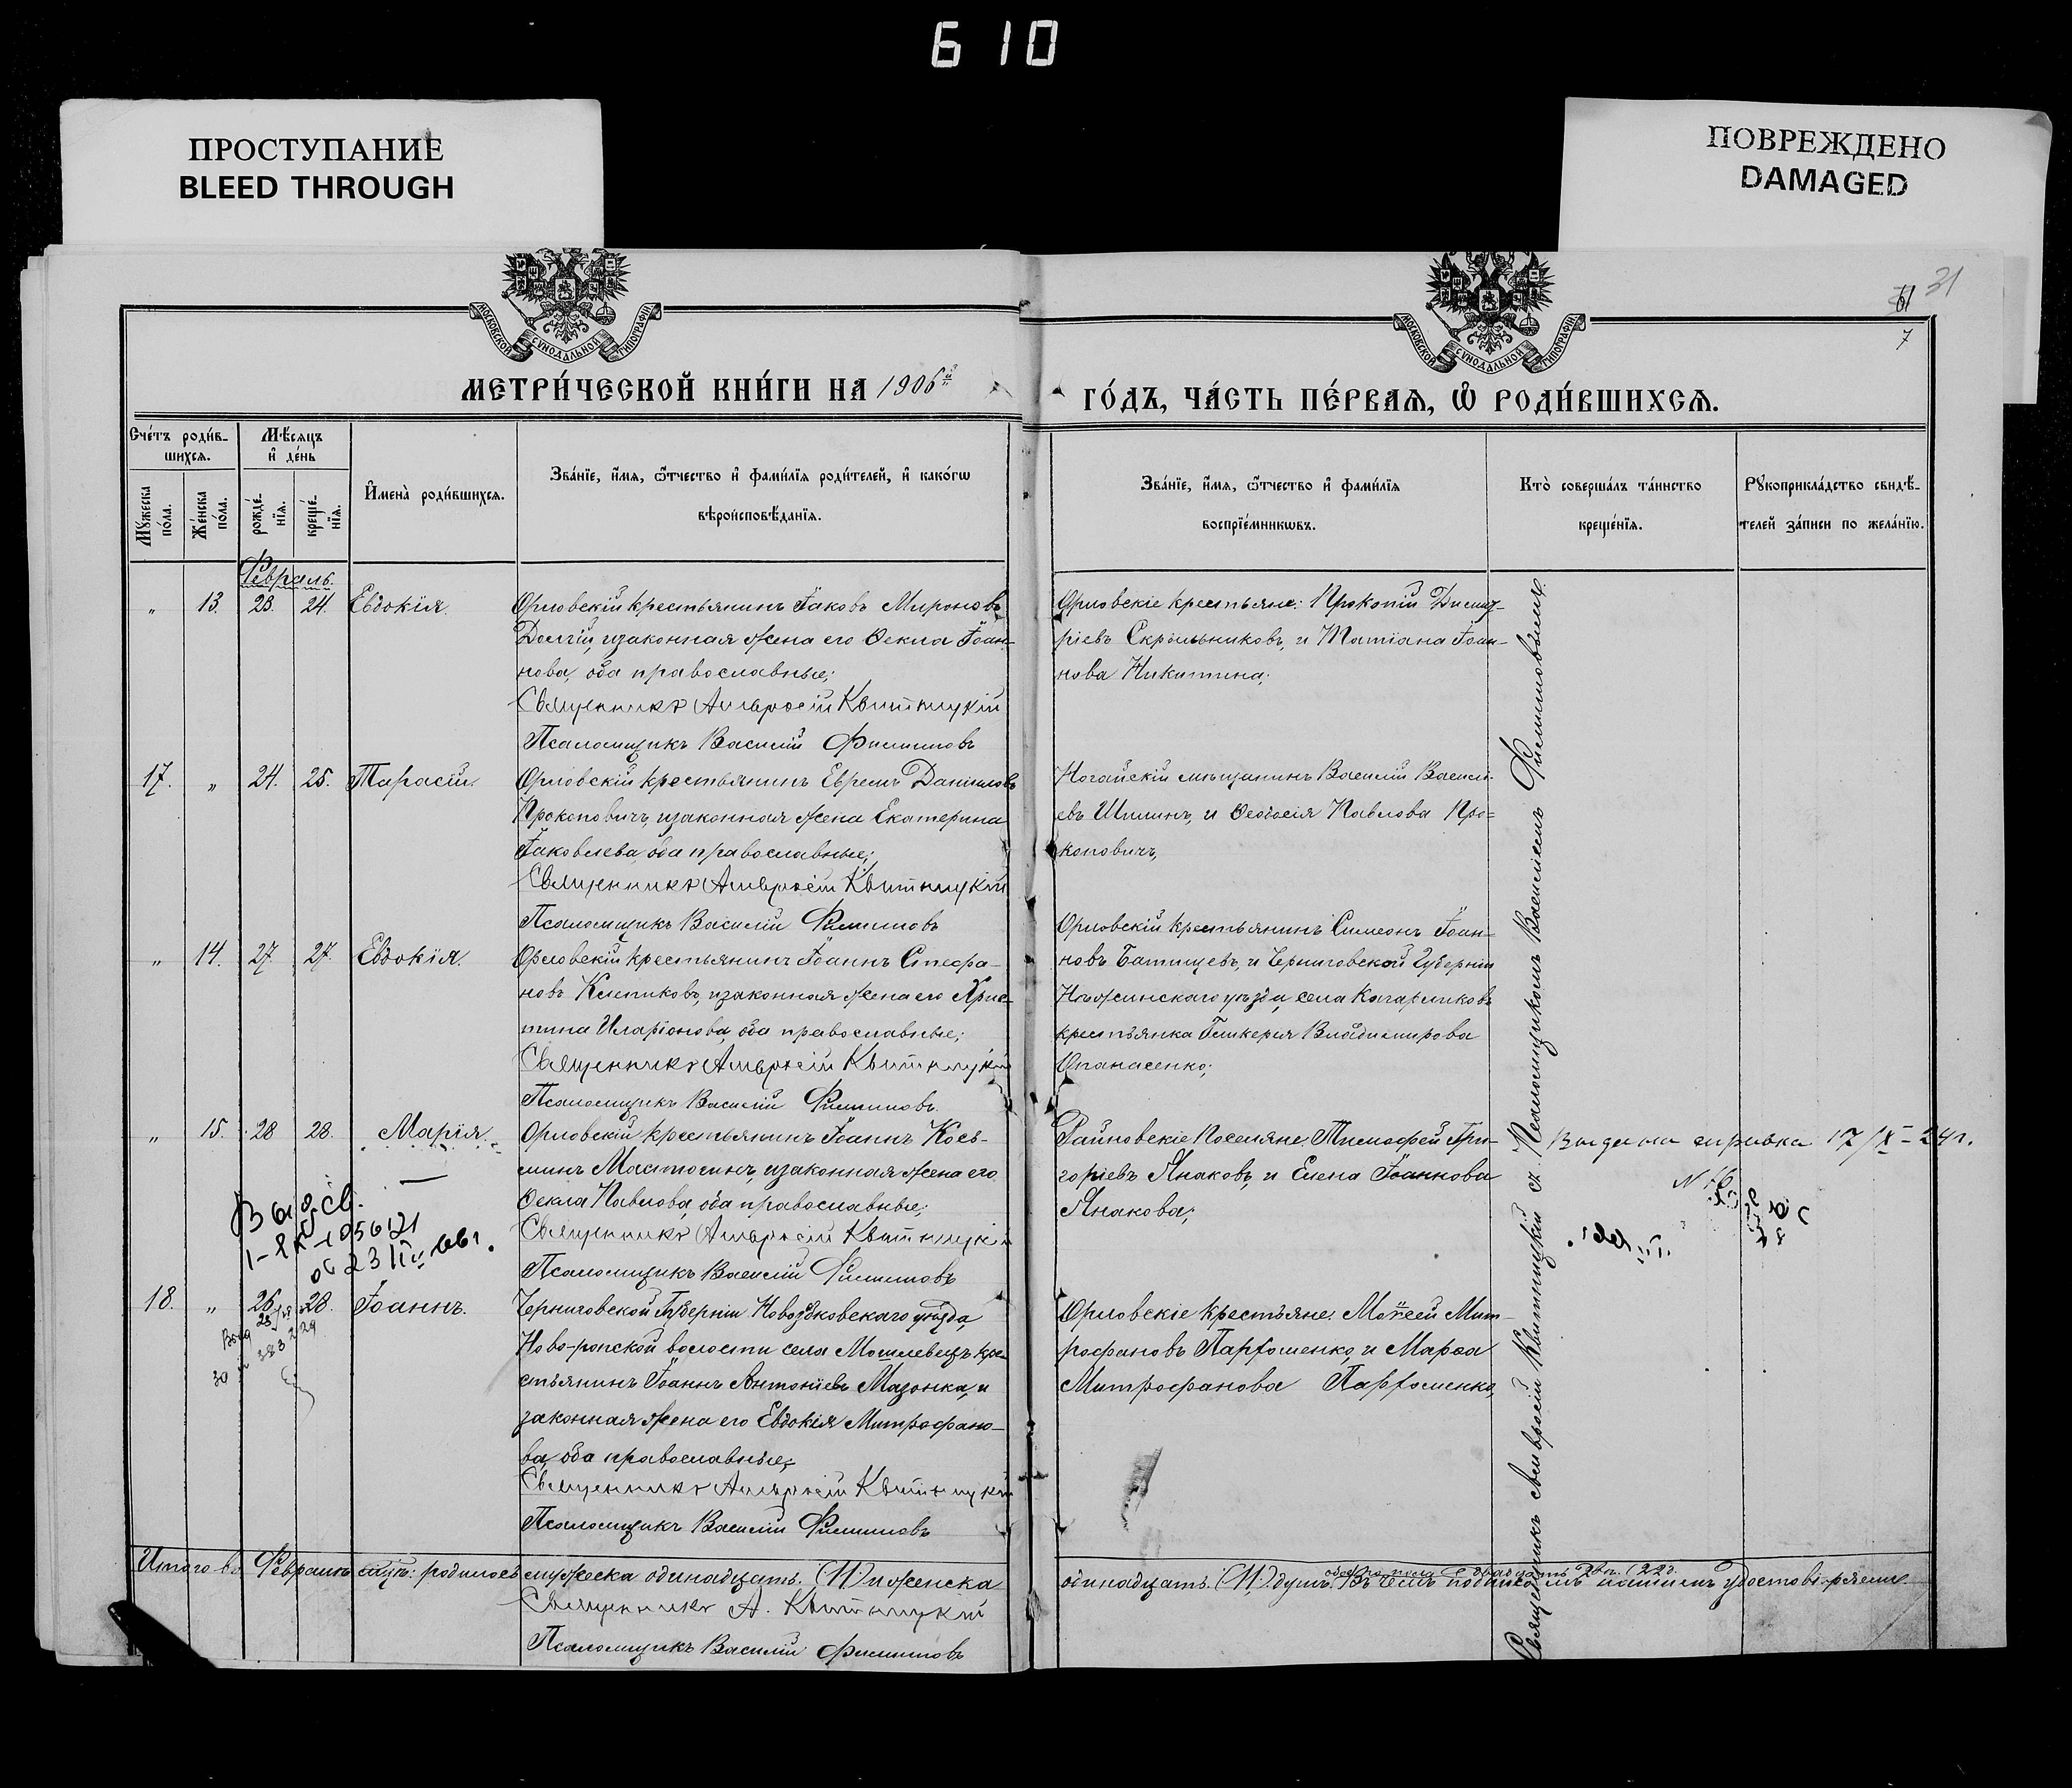 610
ПРОСТУПАНИЕ
BLEED THROUGH
ПОВРЕЖДЕНО
DAMAGED
31
7
МОСКОВСКОЙ СѴНОДАЛЬНОЙ ТИПОГРАФІИ
МОСКОВСКОЙ СѴНОДАЛЬНОЙ ТИПОГРАФІИ
МЕТРИ́ЧЕСКОЙ КНИ́ГИ НА 1906й
ГО́ДЪ, ЧА́СТЬ ПЕ́РВАѦ, Ѡ РОДИ́ВШИХСѦ.
Сче́тъ роди́в-
шихсѧ.
Мѣ́сѧцъ
и де́нь
Мꙋжеска по́ла.
Же́нска по́ла.
рожде́-нїѧ.
креще́-нїѧ.
Имена̀ роди́вшихсѧ.
Зва́нїе, и́мѧ, ѻ҆́тчество и фами́лїѧ роди́телей, и како́гѡ
вѣроисповѣ́данїѧ.
Зва́нїе, и́мѧ, ѻ҆́тчество и фами́лїѧ
воспрїе́мникѡвъ.
Кто̀ соверша́лъ та́инство
креще́нїѧ.
Рꙋкоприкла́дство свидѣ́-
телей за́писи по жела́нїю.
Февраль.
" 13. 23. 24. Евдокія.
Орловскій крестьянинъ Іаковъ Мироновъ
Долгій, и законная жена его Ѳекла Іоан-
нова, оба православные;
Священникъ Амвросій Квитницкій
Псаломщикъ Василій Филиповъ
Орловскіе крестьяне: Прокопій Димит-
ріевъ Скрыльниковъ, и Татіана Іоан-
нова Никитина;
17. " 24. 25. Тарасій.
Орловскій крестьянинъ Ефремъ Даніиловъ
Прокоповичъ, и законная жена Екатерина
Іаковлева, оба православные;
Священникъ Амвросій Квитницкій
Псаломщикъ Василій Филиповъ
Ногайскій мѣщанинъ Василій Василі-
евъ Шилинъ, и Ѳеодосія Павлова Про-
коповичъ,
" 14. 27. 27. Евдокія.
Орловскій крестьянинъ Іоаннъ Стефа-
новъ Клепиковъ, и законная жена его Хрис-
тина Иларіонова, оба православные;
Священникъ Амвросій Квитницкій
Псаломщикъ Василій Филиповъ.
Орловскій крестьянинъ Симеонъ Іоан-
новъ Батищевъ, и Черниговской Губерніи
Нѣжинскаго уѣзда, села
крестьянка Гликерія Владимирова
Опанасенко;
" 15. 28 28. Марія.
Орловскій крестьянинъ Іоаннъ Косъ-
минъ и законная жена его
Ѳекла Павлова, оба православные;
Священникъ Амвросій Квитницкій
Псаломщикъ Василій Филиповъ
Райновскіе Поселяне: Тимофей Гри-
горіевъ Янаковъ, и Елена Іоаннова
Янакова;
Выдана справка 17/IX-24г.
Выд. св.
18. " 26 28. Іоаннъ.
Черниговской Губерніи Новозыбковскаго уѣзда,
Ново-ропской волости села кре-
стьянинъ Іоаннъ Антоніевъ Мазонка, и
законная жена его Евдокія Митрофано-
ва, оба православные;
Священникъ Амвросій Квитницкій
Псаломщикъ Василій Филиповъ
Орловскіе крестьяне: Моѵсей Мит-
рофановъ Парфоменко, и Марѳа
Митрофанова Парфоменко,
Священникъ Амвросій Квитницкій съ Псаломщикомъ Василіемъ Филиповымъ.
Итого въ Февралѣ мцѣ: родилось мужеска одинадцать. (11) и женска
одинадцать. (11) душъ. Въ чемъ подписомъ нашимъ удостовѣряемъ.
Священникъ А. Квитницкій
Псаломщикъ Василій Филиповъ